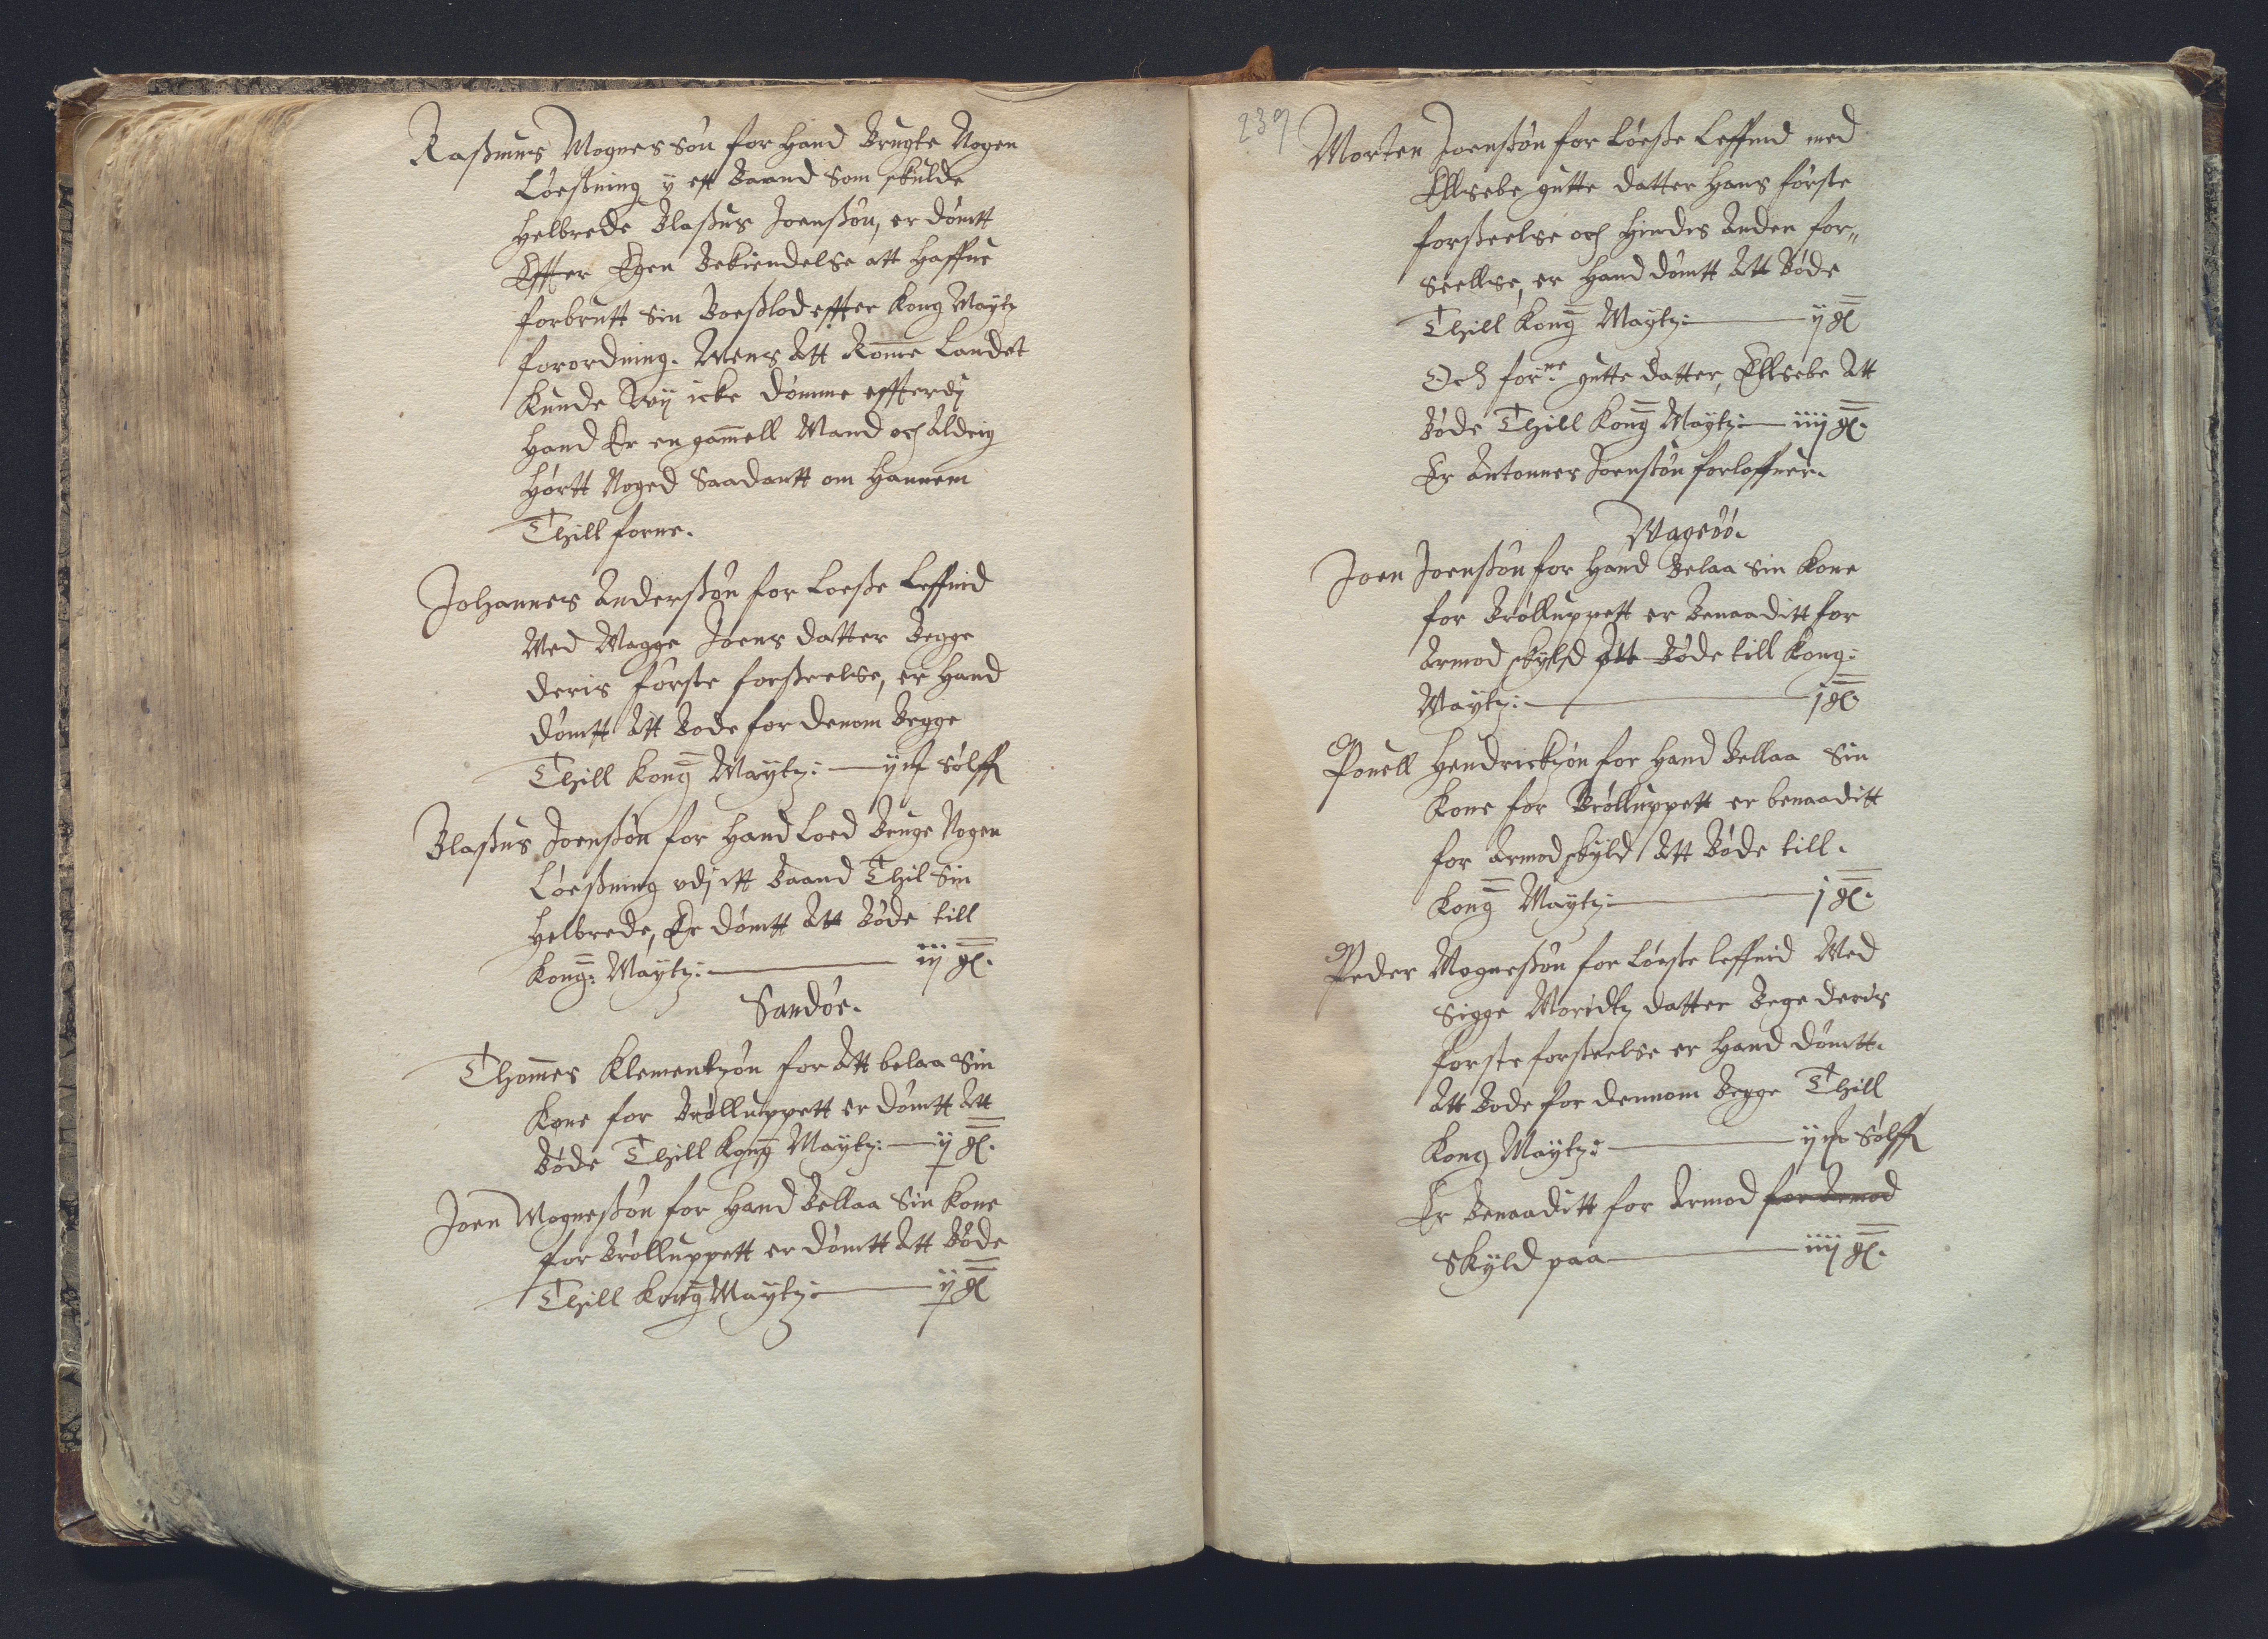 Raßmus Mognes søn for hand Brugte Nogen
Løeßning y ett Baand Som skulde
Helbrede Blaßus Joenßøn, er dømtt
Effter Egen Bekiendelse att haffue
forbrutt Sin Boeßlod effter Kong Maytz
forordning. Mens Att Rømme Landet
kunde Wy icke dømme effterdj
hand Er en gammell Mand och Aldrig
hørtt Noged Saadantt om hannem
Thill forne.
Johannes Anderßøn for Loeße Leffnid
Med Magge Joens datter Begge
deris første forßeelse, er hand
dømtt Att Bode for denom Begge
Thill Kong Maytz: ij m Sølff
Blaßus Joenßøn for hand Loed Bruge Nogen
Løeßning vdj itt Baand Thil Sin
Helbrede, Er dømtt Att Bøde till
Kong: Maytz: iij gl.
Sandøe.
Thommes Klementzøn for Att belaa Sin
Kone for Brølluppett er dømtt Att
Bøde Thill Kong Maytz: ij gl.
Joen Mogneßøn for hand Bellaa Sin Kone
for Brølluppett er dømtt Att Bøde
Thill Kong Maytz: ij gl
239
Morten Joenßøn for Løeße Leffnid med
Ellsebe gutte datter hans første
forßeelse och hindis Anden for„
Seellse, er hand dømtt Att Bøde
Thill Kong Maytz: ij gl
Och forne gutte datter, Ellsebe Att
Bøde Thill Kong Maytz: iiij gl.
Er Antonnes Joenßøn forloffuer.
Wagøø.
Joen Joenßøn for hand Belaa Sin Kone
for Brølluppett er Benaaditt for
Armod skyld Att Bøde till Kong:
Maytz: j gl.
Pouell Hendrickzøn for hand Bellaa Sin
Kone for Brølluppett er benaaditt
for Armod skyld Att Bøde till.
Kong Maytz: j gl.
Peder Mogneßøn for Løeße leffnid Med
Sigge Moridtz datter Bege deris
forste forßeelse er hand dømtt.
Att Bode for dennom Begge Thill
Kong Maytz: ij m Sølff
Er Benaaditt for Armod for Armod
Skyld paa iiij gl.